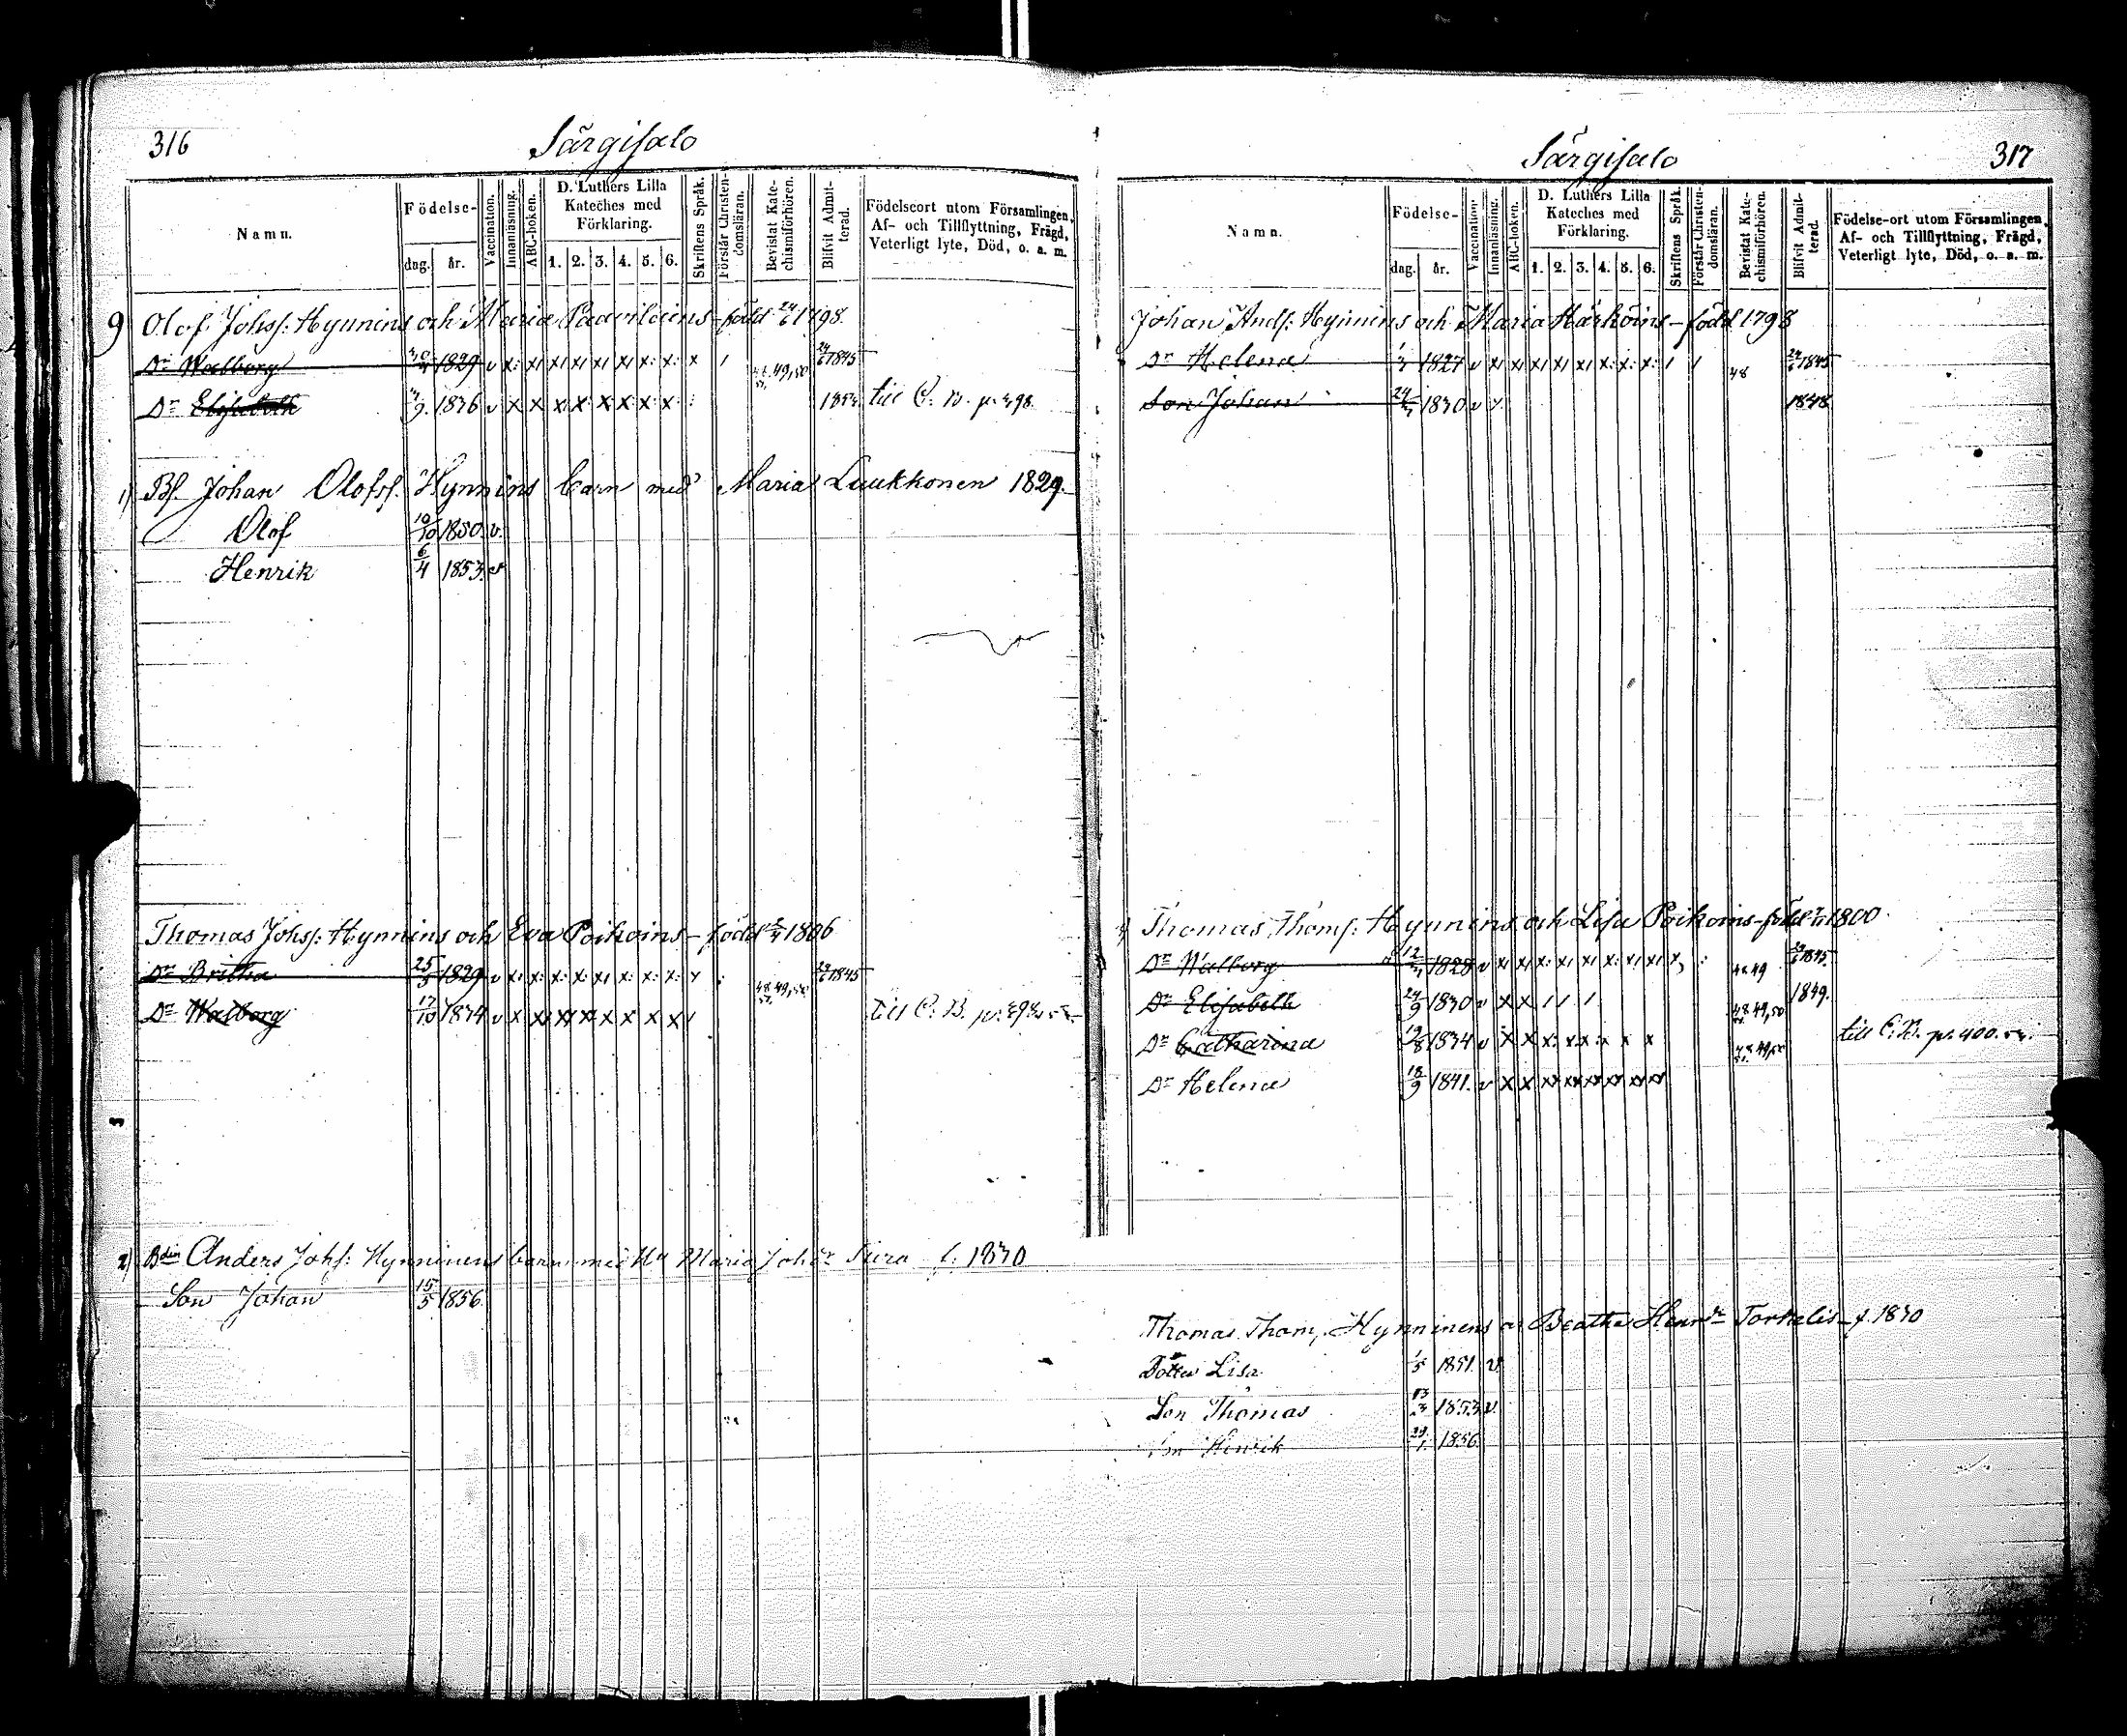 316
Särgisalo
Namn.
Födelse-
dag.
år.
Vaccination.
Innanläsning.
ABC-boken.
D. Luthers Lilla
Kateches med
Förklaring.
1. 2. 3. 4. 5. 6.
Skriftens Språk.
Förstår Christen-
domsläran.
Bevistat Kate-
chismiförhören.
Blifvit Admit-
terad.
Födelseort utom Församlingen,
Af- och Tillflyttning, Frägd,
Veterligt lyte, Död, o. a. m.
9 Olof Johss: Hynnins och Maria Paavilains - född 24/6 1798.
Dr Walborg 1829 v x: x x x x x x: x: x 49,50 24/6 1845
Dr Elisabeth 1836 v x x x x: x x: x: x: till C. B. p. 398.
1) Bf. Johan Olofsf. Hynnins barn med Maria Luukkonen 1829.
Olof 10/10 1850. v.
Henrik 6/4 1853. v
Thomas Johss: Hynnins och Eva Poikoins - född 1806
Dr Britha 25/3 1829 v x: x: x: x: x x: x: x: 48 49,50 24/6 1845
Dr Walborg 17/10 1834 v x x x x x x x x till C. B. p.
2) Bdin Anders Johs: Hynninens barn med Hu Maria Johdr f. 1830
Son Johan 15/5 1856.
Särgisalo
317
Namn.
Födelse-
dag.
år.
Vaccination.
Innanläsning.
ABC-boken.
D. Luthers Lilla
Kateches med
Förklaring.
1. 2. 3. 4. 5. 6.
Skriftens Språk.
Förstår Christen-
domsläran.
Bevistat Kate-
chismiförhören.
Blifvit Admit-
terad.
Födelse-ort utom Församlingen,
Af- och Tillflyttning, Frägd,
Veterligt lyte, Död, o. a. m.
Johan Ands: Hynnins och Maria Härköins - född 1798
Dr Helena 1827 v x x x x x x: x: x: 48 24/6 1845
Son Johan 1830 v 1848
Thomas Thoms: Hynnins och Lisa Poikoins - född 1800
Dr Walborg 1828 v x x x: x x x: x x x 48 49 24/6 1845.
Dr Elisabeth 24/9 1830 v x x 48 49,50 1849.
Dr Catharina 19/8 1834 v x x x: x x x x x 48 49,50 till C. B. p. 400.
Dr Helena 18/9 1841. v x x x x x x x x
Thomas Thoms. Hynninens o. Beatha Henrdr Torkelis - f. 1830
Dotter Lisa 1/5 1851. v.
Son Thomas 1853. v.
Son Henrik 1856